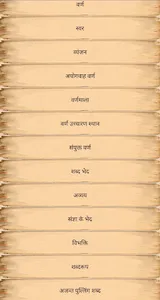 वर्ण
स्वर
व्यंजन
अयोगवाह वर्ण
वर्णमाला
वर्ण उच्चारण स्थान
संयुक्त वर्ण
शब्द भेद
अव्यय
संज्ञा के भेद
विभक्ति
शब्दरूप
अजन्त पुल्लिंग शब्द